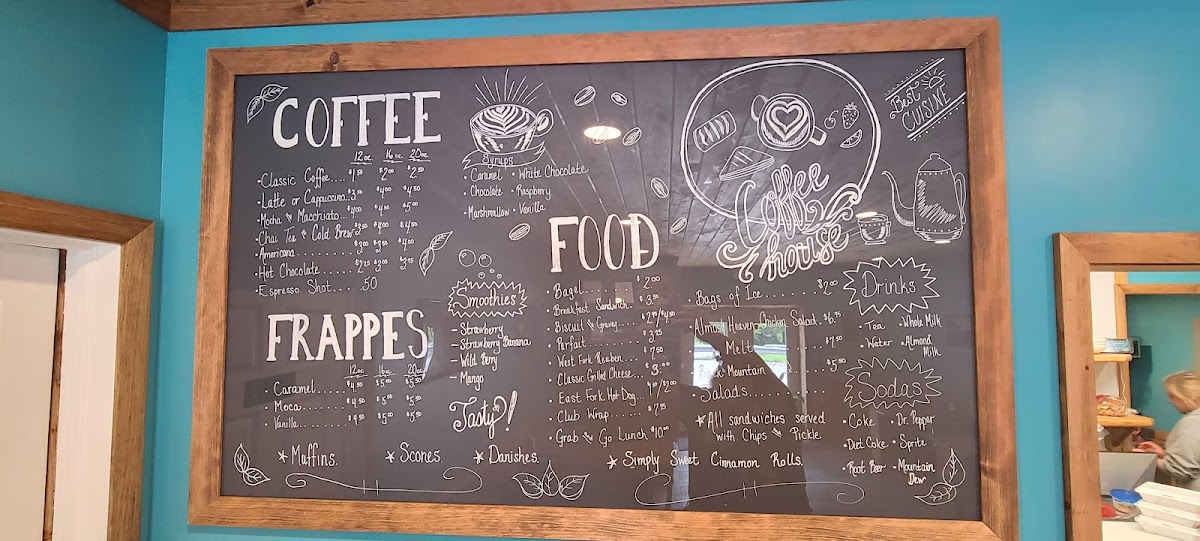 COFFEE
12oc. 16oc. 20oc.
·Classic Coffee.... $1.50 $2.00 $2.50
·Latte or Cappuccino.. $3.50 $4.00 $4.50
·Mocha or Macchiato... $4.00 $4.50 $5.00
·Chai Tea & Cold Brew $3.00 $4.00
·Americana
·Hot Chocolate
·Espresso Shot..... .50
FRAPPES
12oc. 16oc. 20oc.
·Caramel....... $4.50 $5.00 $5.50
·Moca.......... $4.50 $5.00 $5.50
·Vanilla........ $4.50 $5.00 $5.50
*Muffins. *Scones *Danishes.
Syrups
·Caramel ·White Chocolate
·Chocolate ·Raspberry
·Marshmallow ·Vanilla
Smoothies
-Strawberry
-Strawberry Banana
-Wild Berry
-Mango
Tasty!
FOOD
·Bagel........ $2.00
·Breakfast Sandwich. $3.50
·Biscuit & Gravy.... $2.75/$4.50
·Parfait........ $3.25
·West Fork Reuben... $7.50
·Classic Grilled Cheese... $3.00
·East Fork Hot Dog.. /$2.00
·Club Wrap...... $7.75
·Grab & Go Lunch $10.00
*Simply Sweet Cinnamon Rolls.
Coffee
house
Best
CUISINE
·Bags of Ice......... $2.00
·Almost Heaven Chicken Salad. $6.75
Melt $7.50
Mountain $5.50
·Salads
*All sandwiches served
with Chips & Pickle
Drinks
·Tea ·Whole Milk
·Water ·Almond
Milk
Sodas
·Coke ·Dr. Pepper
·Diet Coke ·Sprite
·Root Beer ·Mountain
Dew